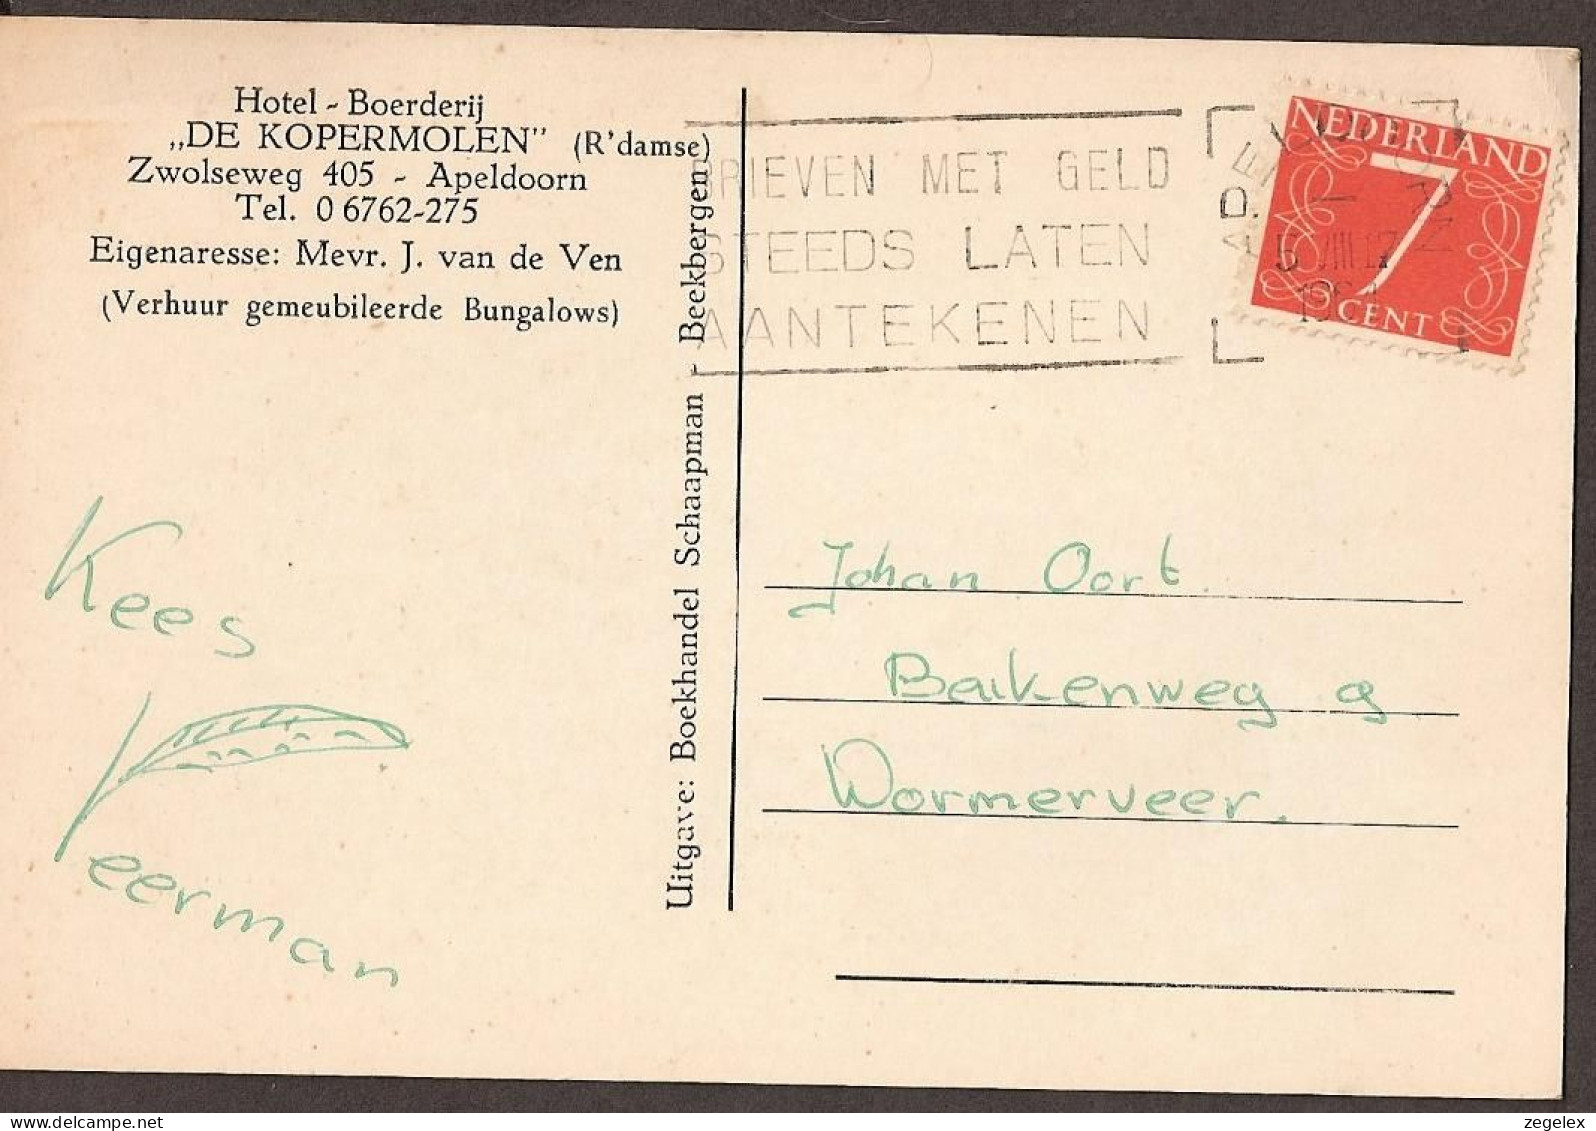 Hotel - Boerderij
„DE KOPERMOLEN" (R'damse)
Zwolseweg 405 - Apeldoorn
Tel. 0 6762-275
Eigenaresse: Mevr. J. van de Ven
(Verhuur gemeubileerde Bungalows)
Uitgave: Boekhandel Schaapman - Beekbergen
BRIEVEN MET GELD
STEEDS LATEN
AANTEKENEN
APELDOORN
5 VIII 17
NEDERLAND
7
CENT
Kees
Veerman
Johan Oort
Wormerveer.
zegelex